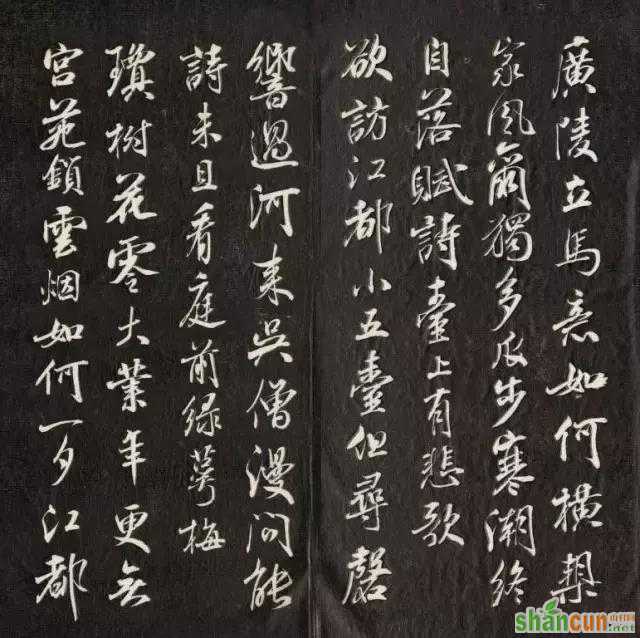 廣陵立馬意如何橫槊
家風爾獨多瓜步寒潮終
自落賦詩臺上有悲歌
欲訪江都小五臺但尋磬
響過河來吳僧漫問能
詩未且看庭前綠萼梅
瓊樹花零大業年更無
宮苑鎖雲烟如何一夕江都
shancun
.net